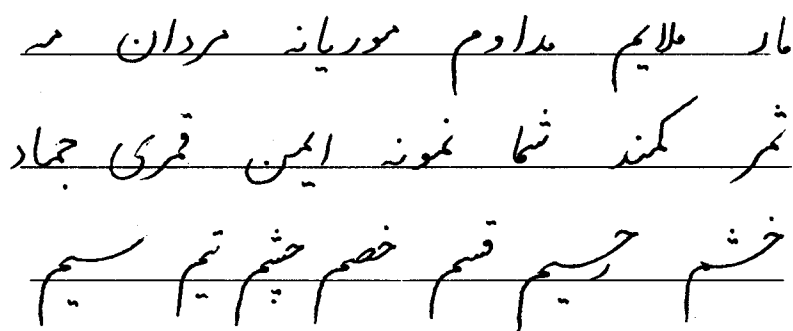 مار ملایم مداوم موریانه مردان مه
ثمر کمند شما نمونه ایمن قمری جماد
خشم رحیم قسم خصم چشم تیم سیم